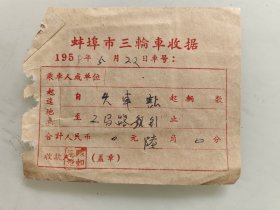 蚌埠市三輪車收据
195 年 月22日車号:
乘車人或單位
起迄地点 自 火車站 起 輛数
至 二馬路 止
合計人民币 0元 陸 角 0分
收款人 (蓋章)